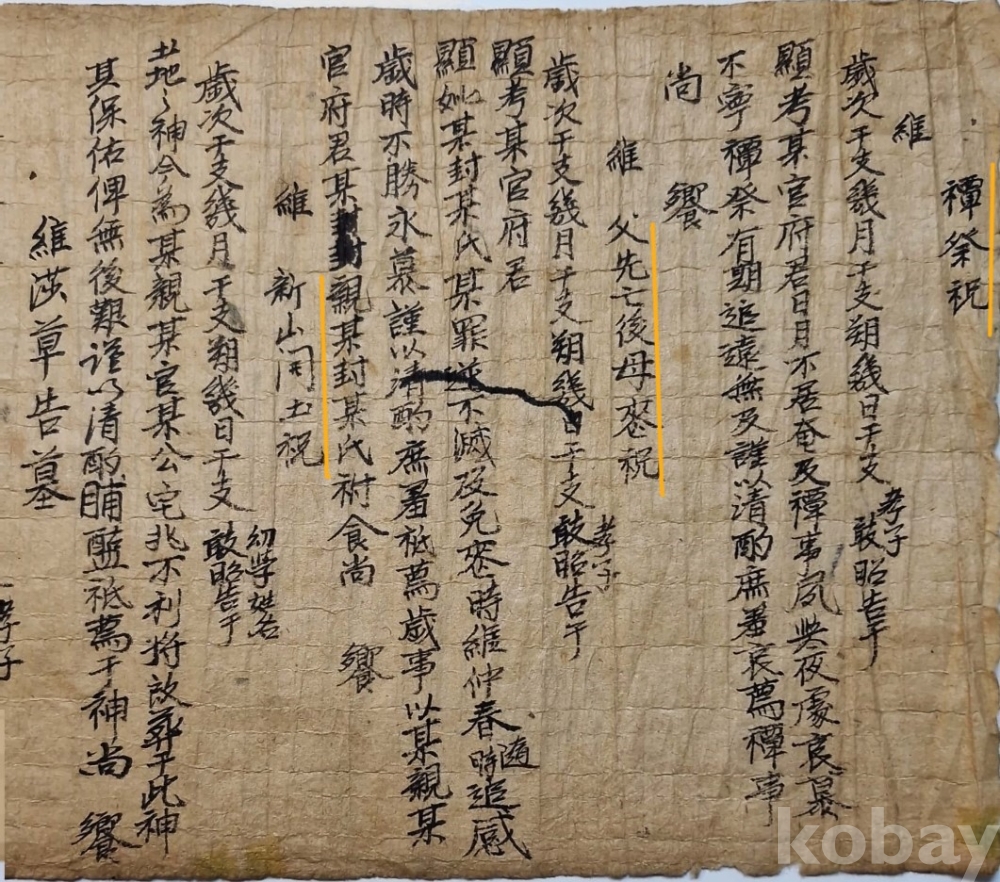 禫祭祝
維
歲次干支幾月干支朔幾日干支 孝子 敢昭告于
顯考某官府君日月不居奄及禫事夙興夜處哀慕
不寧禫祭有期追遠無及謹以清酌庶羞哀薦禫事
尚 饗
維 父先亡後母喪祝
歲次干支幾月干支朔幾日干支 孝子 敢昭告于
顯考某官府君
顯妣某封某氏某罪逆不滅及免喪時維仲春 隨時 追感
歲時不勝永慕謹以清酌庶羞祗薦歲事以某親某
官府君某親某封某氏祔食尚 饗
維 新山開土祝
歲次干支幾月干支朔幾日干支 幼學姓名 敢昭告于
土地之神今為某親某官某公宅兆不利將改葬于此神
其保佑俾無後艱謹以清酌脯醢祗薦于神尚 饗
維 草告墓
孝子
kobay